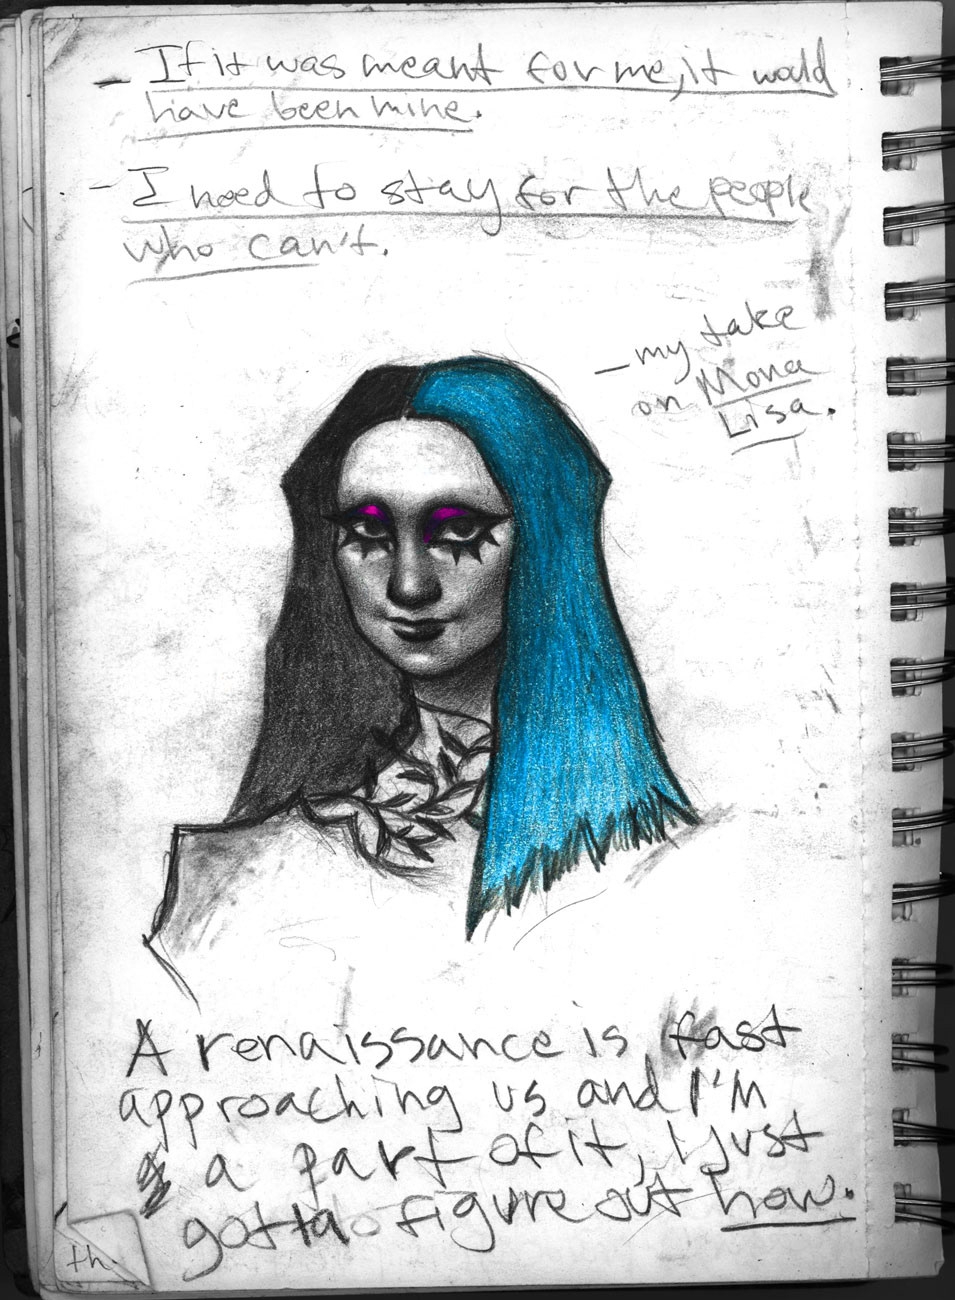 - If it was meant for me, it would
have been mine.
- I need to stay for the people
who can't.
- my take
on Mona
Lisa.
A renaissance is fast
approaching us and I'm
a part of it, I just
gotta figure out how.
th